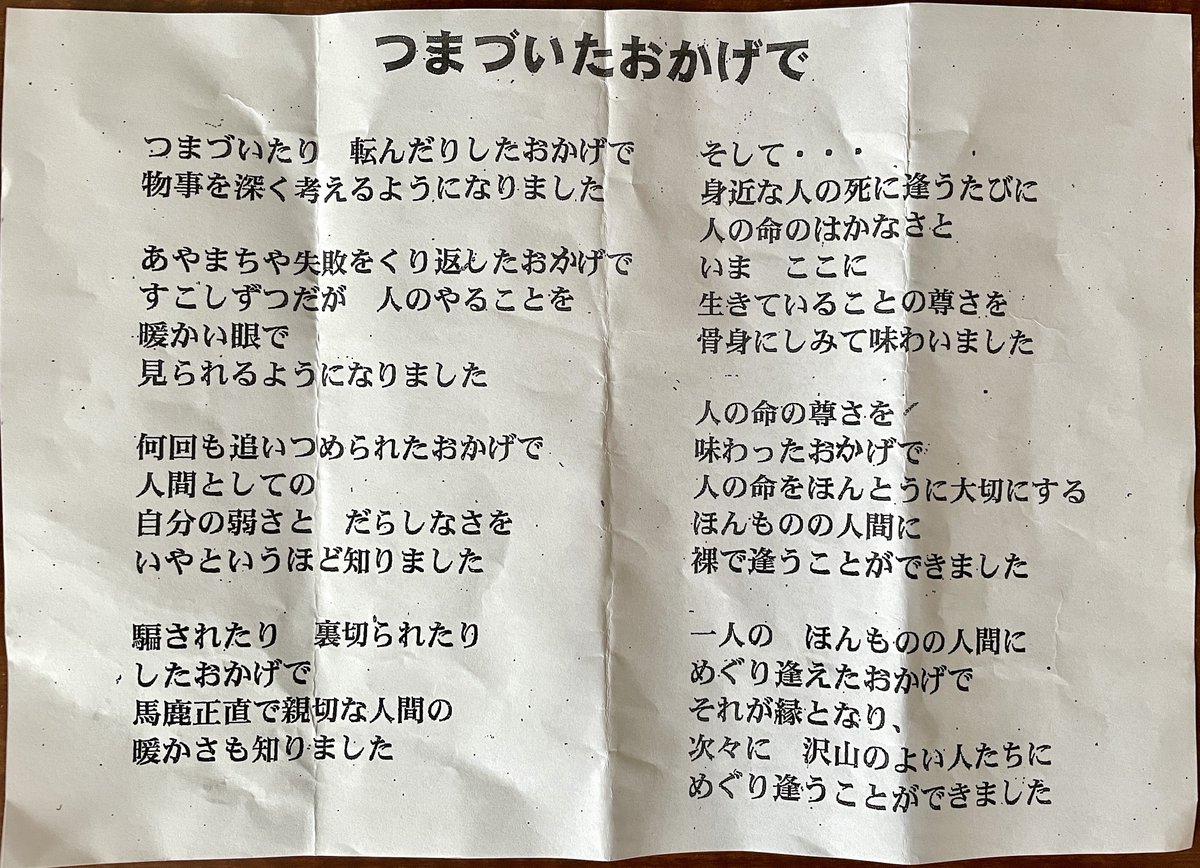 つまづいたおかげで
つまづいたり　転んだりしたおかげで
物事を深く考えるようになりました
あやまちや失敗をくり返したおかげで
すこしずつだが　人のやることを
暖かい眼で
見られるようになりました
何回も追いつめられたおかげで
人間としての
自分の弱さと　だらしなさを
いやというほど知りました
騙されたり　裏切られたり
したおかげで
馬鹿正直で親切な人間の
暖かさも知りました
そして・・・
身近な人の死に逢うたびに
人の命のはかなさと
いま　ここに
生きていることの尊さを
骨身にしみて味わいました
人の命の尊さを
味わったおかげで
人の命をほんとうに大切にする
ほんものの人間に
裸で逢うことができました
一人の　ほんものの人間に
めぐり逢えたおかげで
それが縁となり、
次々に　沢山のよい人たちに
めぐり逢うことができました